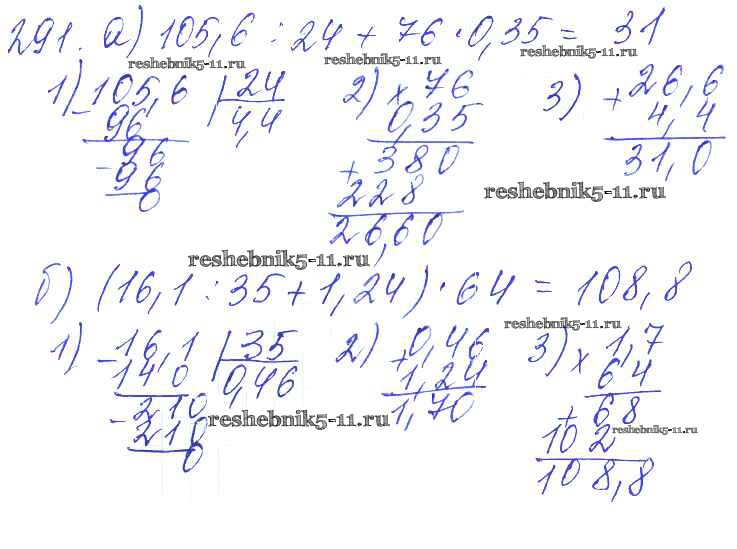 291. а) 105,6 : 24 + 76 · 0,35 = 31
reshebnik5-11.ru reshebnik5-11.ru reshebnik5-11.ru
1) 105,6 | 24 2) × 76 3) + 26,6
- 96 4,4 0,35 4,4
- 96 + 380 31,0
96 228 reshebnik5-11.ru
0 26,60
reshebnik5-11.ru
б) (16,1 : 35 + 1,24) · 64 = 108,8
reshebnik5-11.ru
1) - 16,1 | 35 2) + 0,46 3) × 1,7
140 0,46 1,24 64
- 210 reshebnik5-11.ru 1,70 + 68
210 102 reshebnik5-11.ru
0 108,8